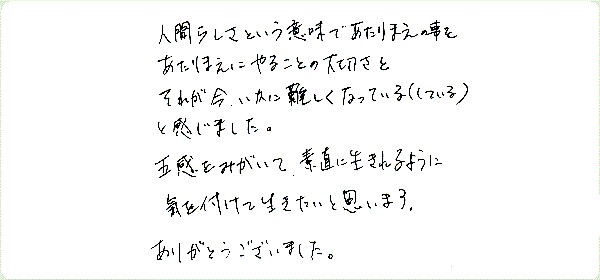 人間らしさという意味であたりまえの事を
あたりまえにやることの大切さと
それが今、いかに難しくなっている(している)
と感じました。
五感をみがいて、素直に生きれるように
気を付けて生きたいと思います。
ありがとうございました。